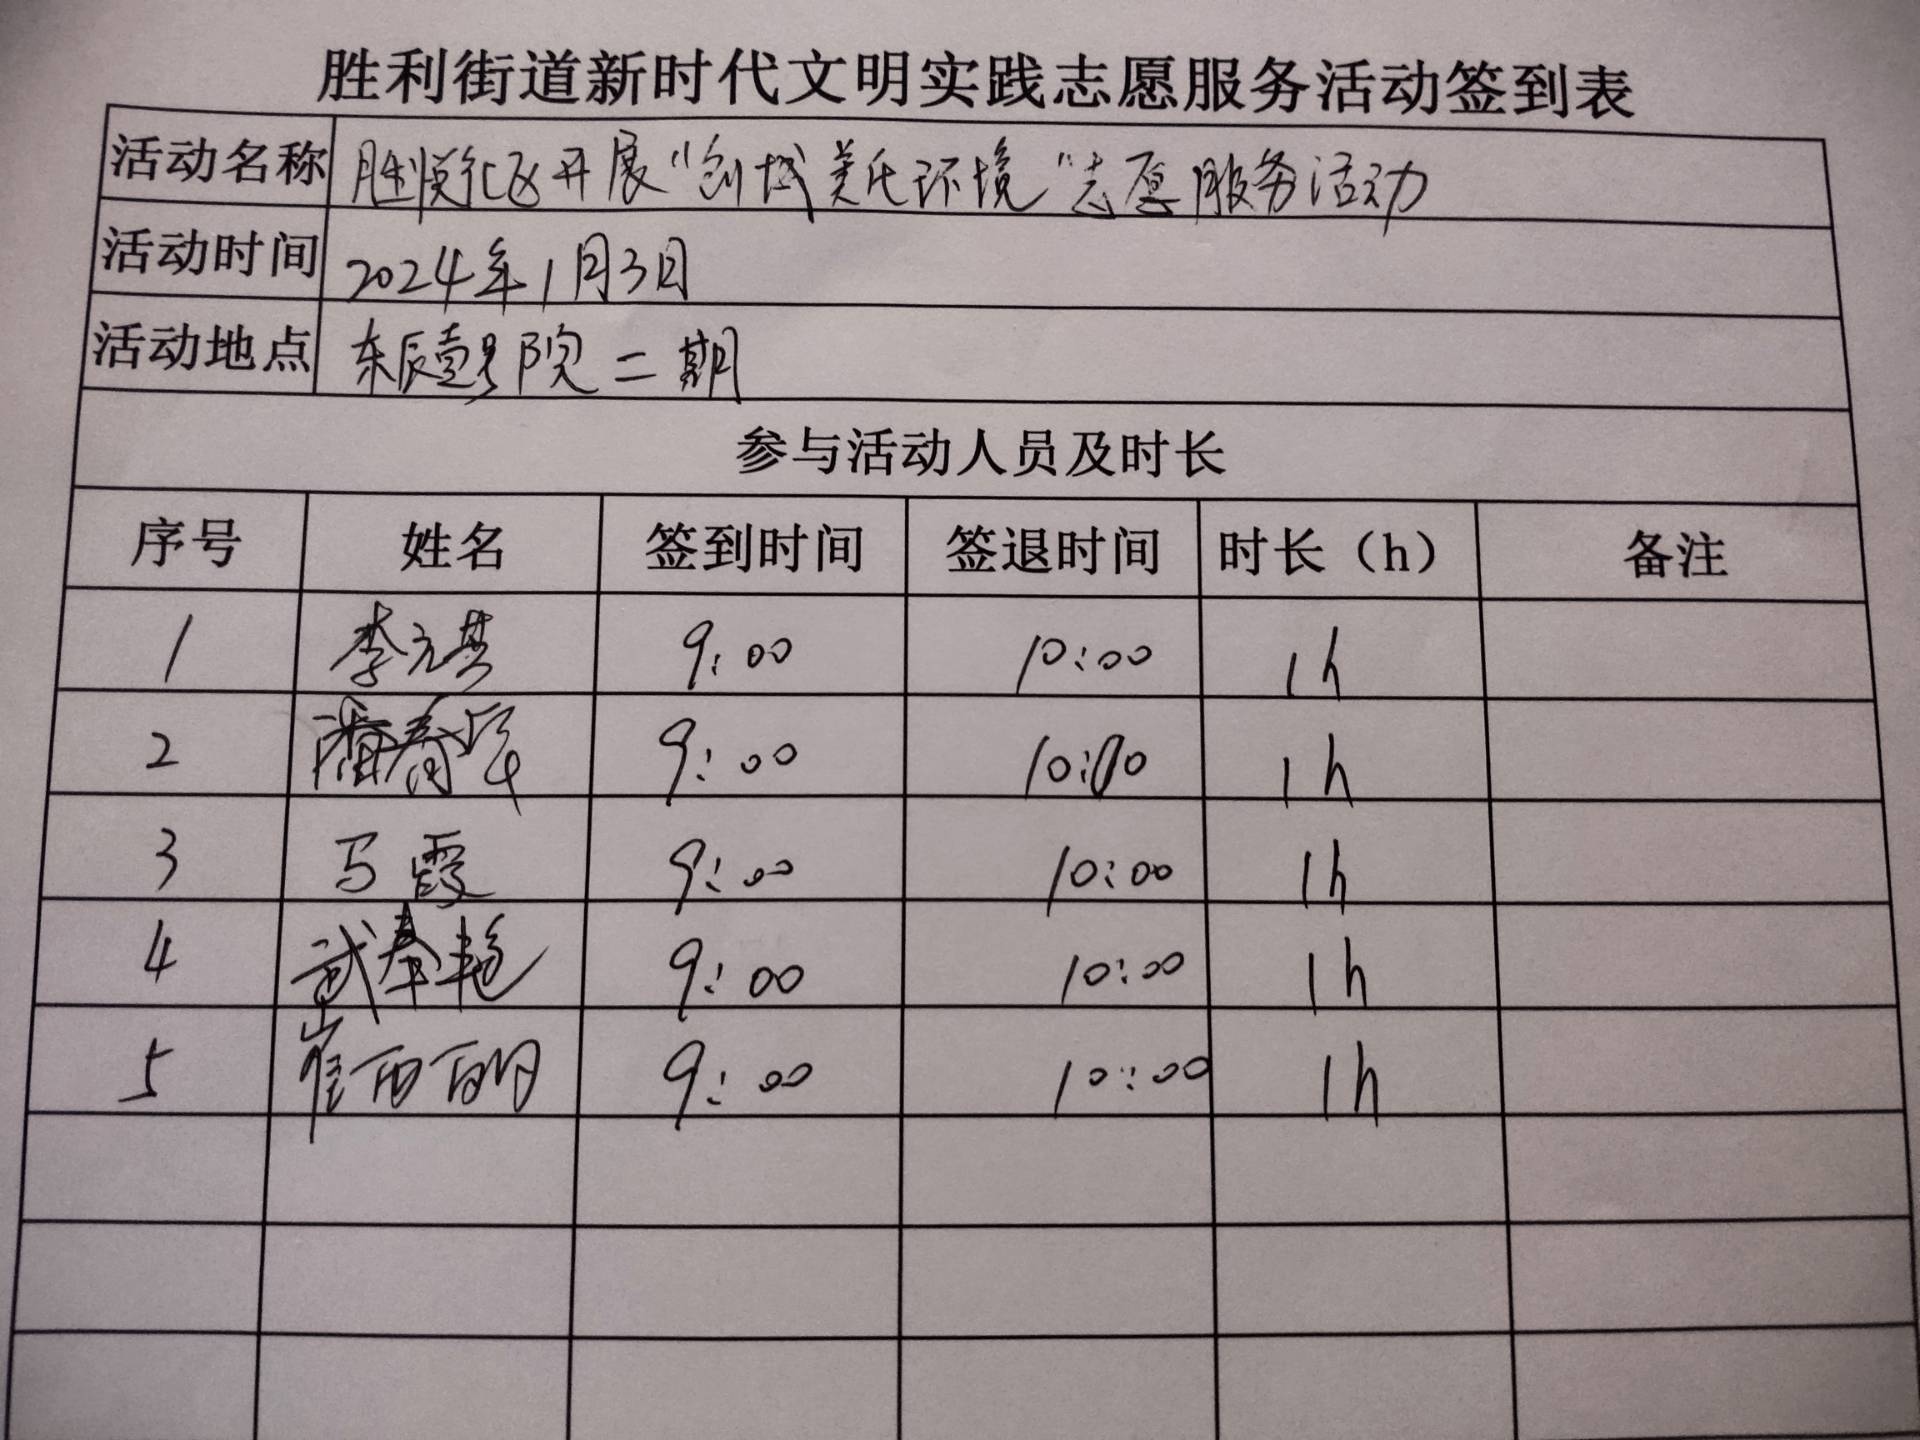 胜利街道新时代文明实践志愿服务活动签到表
活动名称 胜悦社区开展“创城美化环境”志愿服务活动
活动时间 2024年1月3日
活动地点 东辰壹号院二期
参与活动人员及时长
序号 姓名 签到时间 签退时间 时长（h） 备注
1 李元其 9:00 10:00 1h
2 潘春 9:00 10:00 1h
3 马霞 9:00 10:00 1h
4 武春艳 9:00 10:00 1h
5 崔丽丽 9:00 10:00 1h